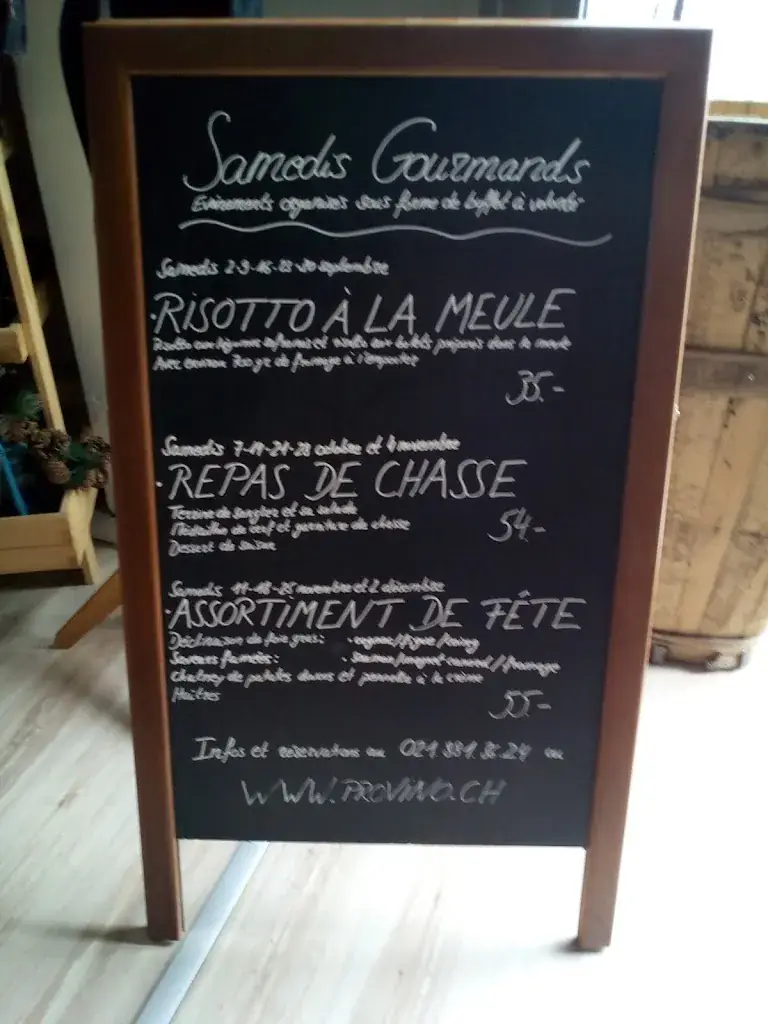 Samedis Gourmands
Evénements organisés sous forme de buffet à volonté
Samedis 2-9-16-23-30 septembre
RISOTTO À LA MEULE
dans la meule
Avec environ de fromage à l'emporter
35.-
Samedis 7-14-21-28 octobre et 4 novembre
REPAS DE CHASSE
Terrine de sanglier et sa salade
Médaillon de cerf et garniture de chasse
Dessert de saison
54.-
Samedis 11-18-25 novembre et 2 décembre
ASSORTIMENT DE FÊTE
Déclinaison de foie gras: - cognac//figue/
Saveurs fumées: - saumon/magret canard//fromage
Chutney de patates douces et pannella à la crème
Huîtres
55.-
Infos et réservations au ou
WWW.PROVINO.CH